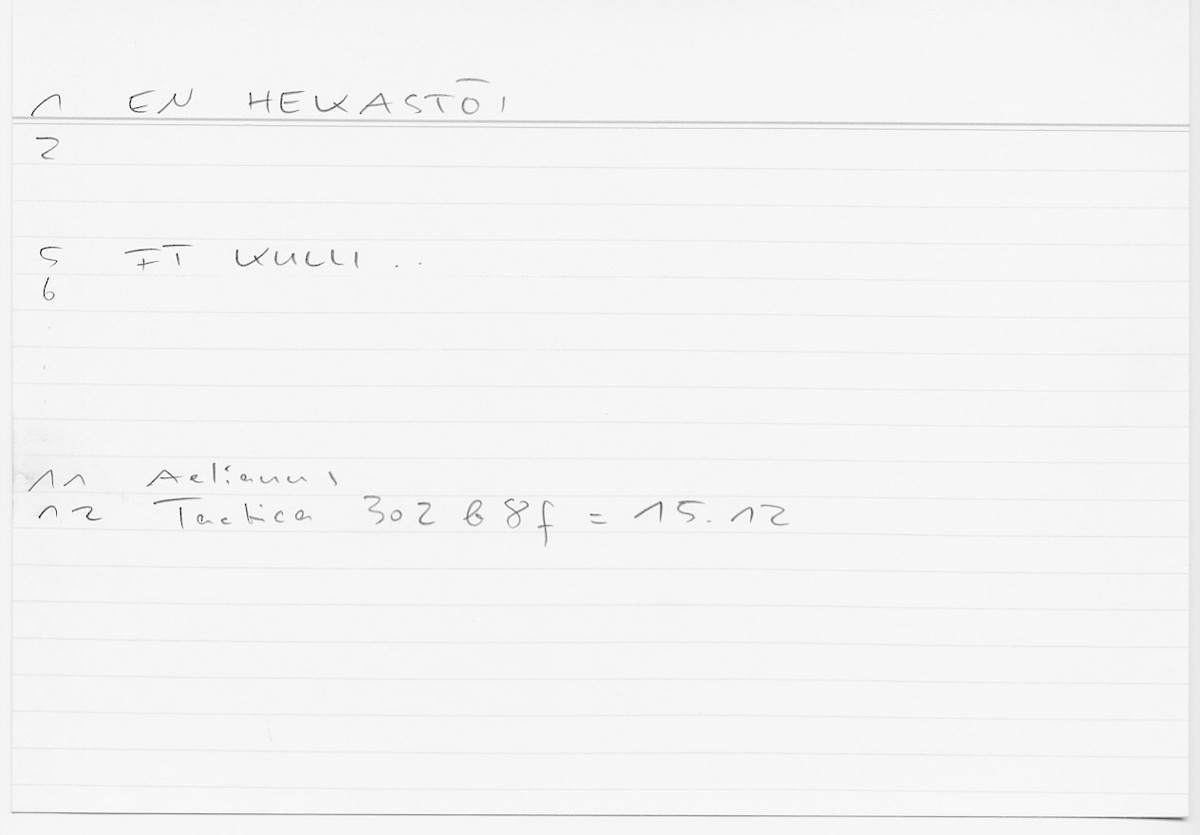 1 EN HEKASTŌI
2
5 IT KULLI ..
6
11 Aelianus
12 Tactica 302 b 8f = 15.12